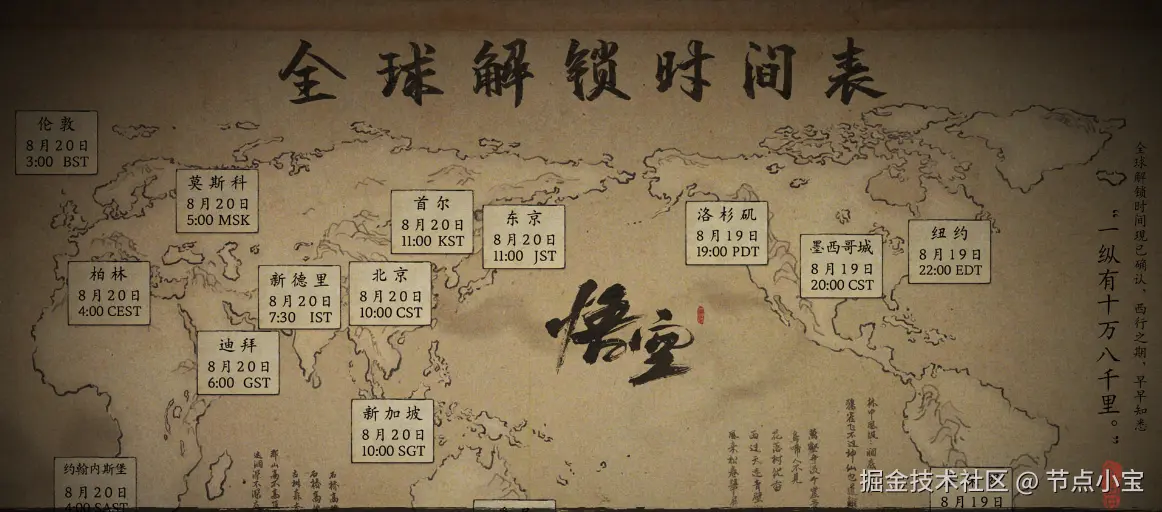 全球解锁时间表
伦敦
8月20日
3:00 BST
莫斯科
8月20日
5:00 MSK
首尔
8月20日
11:00 KST
东京
8月20日
11:00 JST
洛杉矶
8月19日
19:00 PDT
墨西哥城
8月19日
20:00 CST
纽约
8月19日
22:00 EDT
柏林
8月20日
4:00 CEST
新德里
8月20日
7:30 IST
北京
8月20日
10:00 CST
迪拜
8月20日
6:00 GST
新加坡
8月20日
10:00 SGT
约翰内斯堡
8月20日
4:00 SAST
8月19日
悟空
全球解锁时间现已确认，西行之期，早早知悉
“一纵有十万八千里。”
掘金技术社区 @ 节点小宝